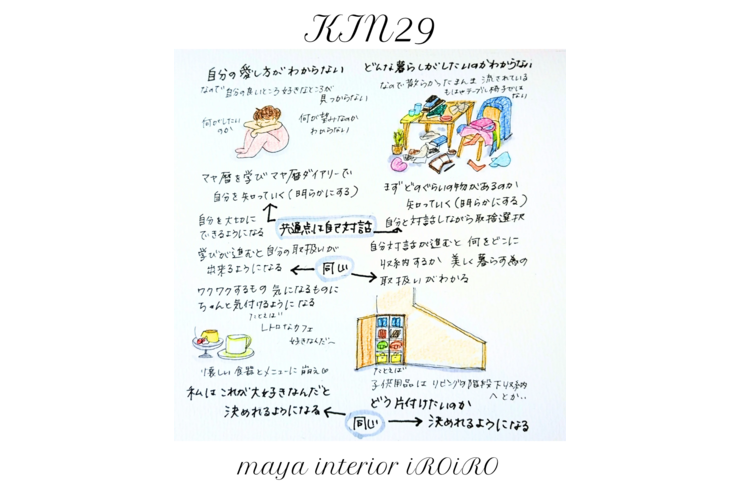 KIN29
自分の愛し方がわからない
なので自分の良いところ好きなところが
見つからない
何がしたい
のか
何が望みなのか
わからない
マヤ暦を学びマヤ暦ダイアリーで
自分を知っていく(明らかにする)
自分を大切に
できるようになる
共通点は自己対話
学びが進むと自分の取扱いが
出来るようになる
同じ
ワクワクするもの 気になるものに
ちゃんと気付けるようになる
たとえば
レトロなカフェ
好きなんだ〜
懐しい食器とメニューに萌え
私はこれが大好きなんだと
決めれるようになる
どんな暮らしがしたいのかわからない
なので散らかったまんま 流されている
もはやテーブル椅子では
ない
まずどのぐらいの物があるのか
知っていく(明らかにする)
自分と対話しながら取捨選択
自分対話が進むと 何をどこに
収納するか 美しく暮らす為の
取扱いがわかる
たとえば
子供用品は リビング階段下収納
へとか‥
どう片付けたいのか
同じ
決めれるようになる
maya interior iROiRO